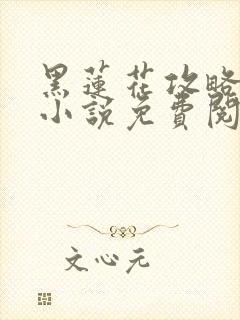 黑蓮花攻略
小說免費閱
文心元